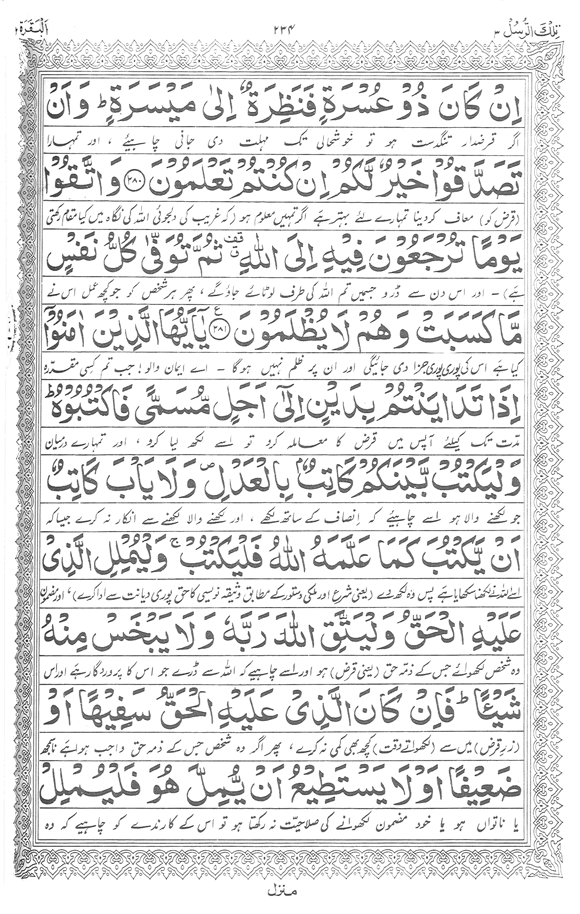 تِلْكَ الرُّسُلُ ٣ ٢٣٤ اَلْبَقَرَة ٢
اِنْ كَانَ ذُوْ عُسْرَةٍ فَنَظِرَةٌ اِلٰى مَيْسَرَةٍ ؕ وَاَنْ
اگر قرضدار تنگدست ہو تو خوشحالی تک مہلت دی جانی چاہیئے ، اور تمہارا
تَصَدَّقُوْا خَيْرٌ لَّكُمْ اِنْ كُنْتُمْ تَعْلَمُوْنَ ﴿٢٨٠﴾ وَاتَّقُوْا
(قرض کو) معاف کردینا تمہارے لئے بہتر ہے اگر تمہیں معلوم ہو (کہ غریب کی دلجوئی اللہ کی نگاہ میں کیا مقام رکھتی
يَوْمًا تُرْجَعُوْنَ فِيْهِ اِلَى اللّٰهِ ثُمَّ تُوَفّٰى كُلُّ نَفْسٍ
ہے) ۔ اور اس دن سے ڈرو جسمیں تم اللہ کی طرف لوٹائے جاؤ گے، پھر ہر شخص کو جو کچھ عمل اس نے
مَّا كَسَبَتْ وَهُمْ لَا يُظْلَمُوْنَ ﴿٢٨١﴾ يٰۤاَيُّهَا الَّذِيْنَ اٰمَنُوْۤا
کیا ہے اس کی پوری پوری جزا دی جائیگی اور ان پر ظلم نہیں ہو گا ۔ اے ایمان والو! جب تم کسی مقررہ
اِذَا تَدَايَنْتُمْ بِدَيْنٍ اِلٰۤى اَجَلٍ مُّسَمًّى فَاكْتُبُوْهُ ؕ
مدّت تک کیلئے آپس میں قرض کا معاملہ کرو تو اسے لکھ لیا کرو ، اور تمہارے درمیان
وَلْيَكْتُبْ بَّيْنَكُمْ كَاتِبٌۢ بِالْعَدْلِ ۪ وَلَا يَاْبَ كَاتِبٌ
جو لکھنے والا ہو اسے چاہیئے کہ انصاف کے ساتھ لکھے ، اور لکھنے والا لکھنے سے انکار نہ کرے جیساکہ
اَنْ يَّكْتُبَ كَمَا عَلَّمَهُ اللّٰهُ فَلْيَكْتُبْ ۚ وَلْيُمْلِلِ الَّذِىْ
اسے اللہ نے لکھنا سکھایا ہے پس وہ لکھ دے (یعنی شرع اور ملکی دستور کے مطابق وثیقہ نویسی کا حق پوری دیانت سے ادا کرے)، اور مضمون
عَلَيْهِ الْحَقُّ وَلْيَتَّقِ اللّٰهَ رَبَّهٗ وَلَا يَبْخَسْ مِنْهُ
وہ شخص لکھوائے جس کے ذمہ حق (یعنی قرض) ہو اور اسے چاہیے کہ اللہ سے ڈرے جو اس کا پروردگار ہے اور اس
شَيْـًٔا ؕ فَاِنْ كَانَ الَّذِىْ عَلَيْهِ الْحَقُّ سَفِيْهًا اَوْ
(زرِ قرض) میں سے (لکھواتے وقت) کچھ بھی کمی نہ کرے ، پھر اگر وہ شخص جس کے ذمہ حق واجب ہوا ہے ناسمجھ
ضَعِيْفًا اَوْ لَا يَسْتَطِيْعُ اَنْ يُّمِلَّ هُوَ فَلْيُمْلِلْ
یا ناتواں ہو یا خود مضمون لکھوانے کی صلاحیّت نہ رکھتا ہو تو اس کے کارندے کو چاہیے کہ وہ
منزل